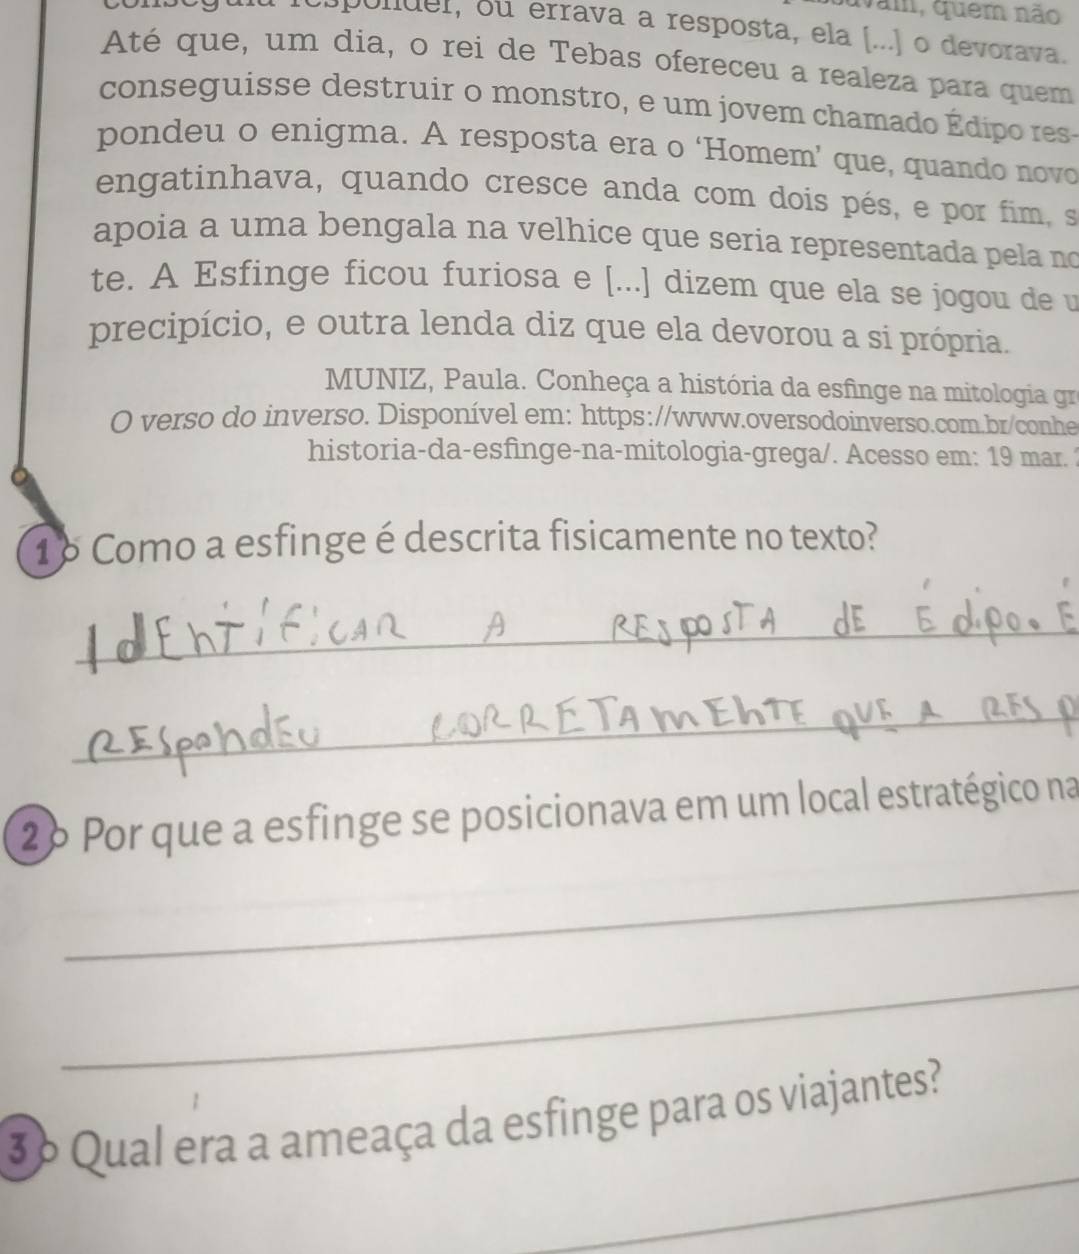 responder, ou errava a resposta, ela [...] o devorava.
quem não
Até que, um dia, o rei de Tebas ofereceu a realeza para quem
conseguisse destruir o monstro, e um jovem chamado Édipo res-
pondeu o enigma. A resposta era o ‘Homem’ que, quando novo
engatinhava, quando cresce anda com dois pés, e por fim, s
apoia a uma bengala na velhice que seria representada pela no
te. A Esfinge ficou furiosa e [...] dizem que ela se jogou de u
precipício, e outra lenda diz que ela devorou a si própria.
MUNIZ, Paula. Conheça a história da esfinge na mitologia gr
O verso do inverso. Disponível em: https://www.oversodoinverso.com.br/conhe
historia-da-esfinge-na-mitologia-grega/. Acesso em: 19 mar.
1 Como a esfinge é descrita fisicamente no texto?
IdEnTiFiCAR A RESPOSTA dE Édipo. É
RESpondEu CORRETAmEnTE QUE A RESP
2 Por que a esfinge se posicionava em um local estratégico na
3 Qual era a ameaça da esfinge para os viajantes?